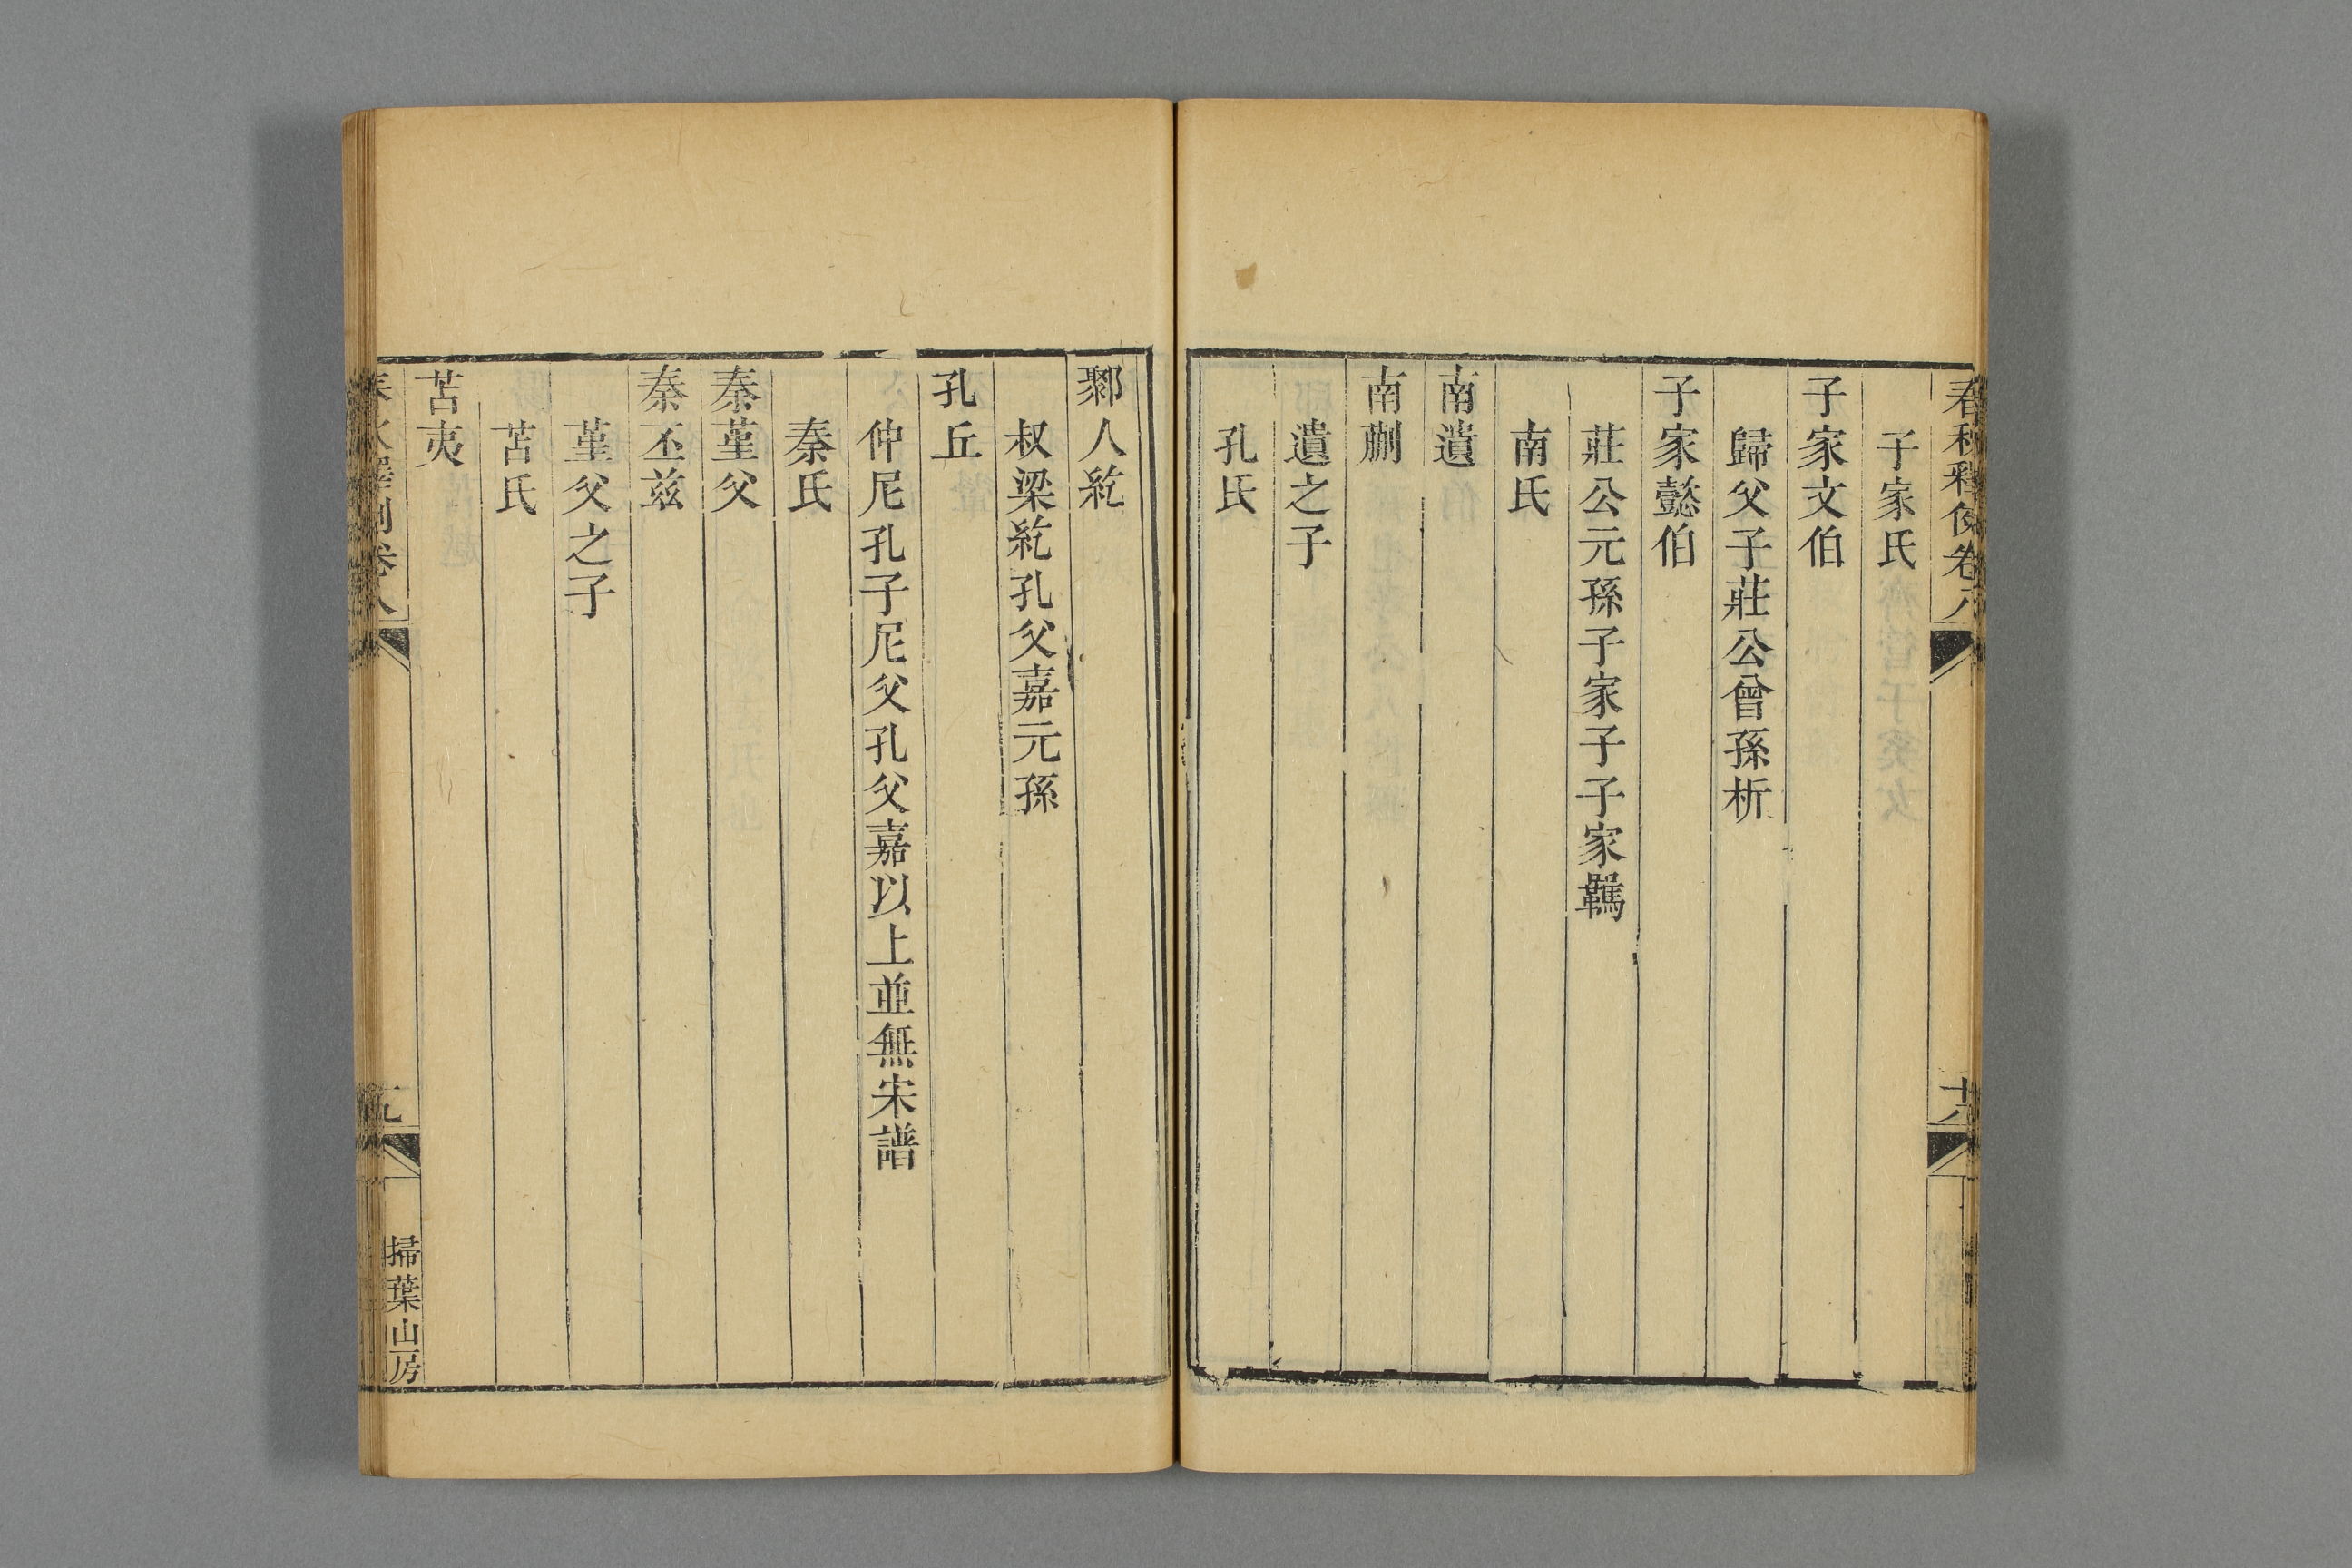 春秋釋例卷八
十八
子家氏
子家文伯
歸父子莊公曾孫析
子家懿伯
莊公元孫子家子子家羈
南氏
南遺
南蒯
遺之子
孔氏
鄹人紇
叔梁紇孔父嘉元孫
孔丘
仲尼孔子尼父孔父嘉以上並無宋譜
秦氏
秦堇父
秦丕兹
堇父之子
苫氏
苫夷
掃葉山房